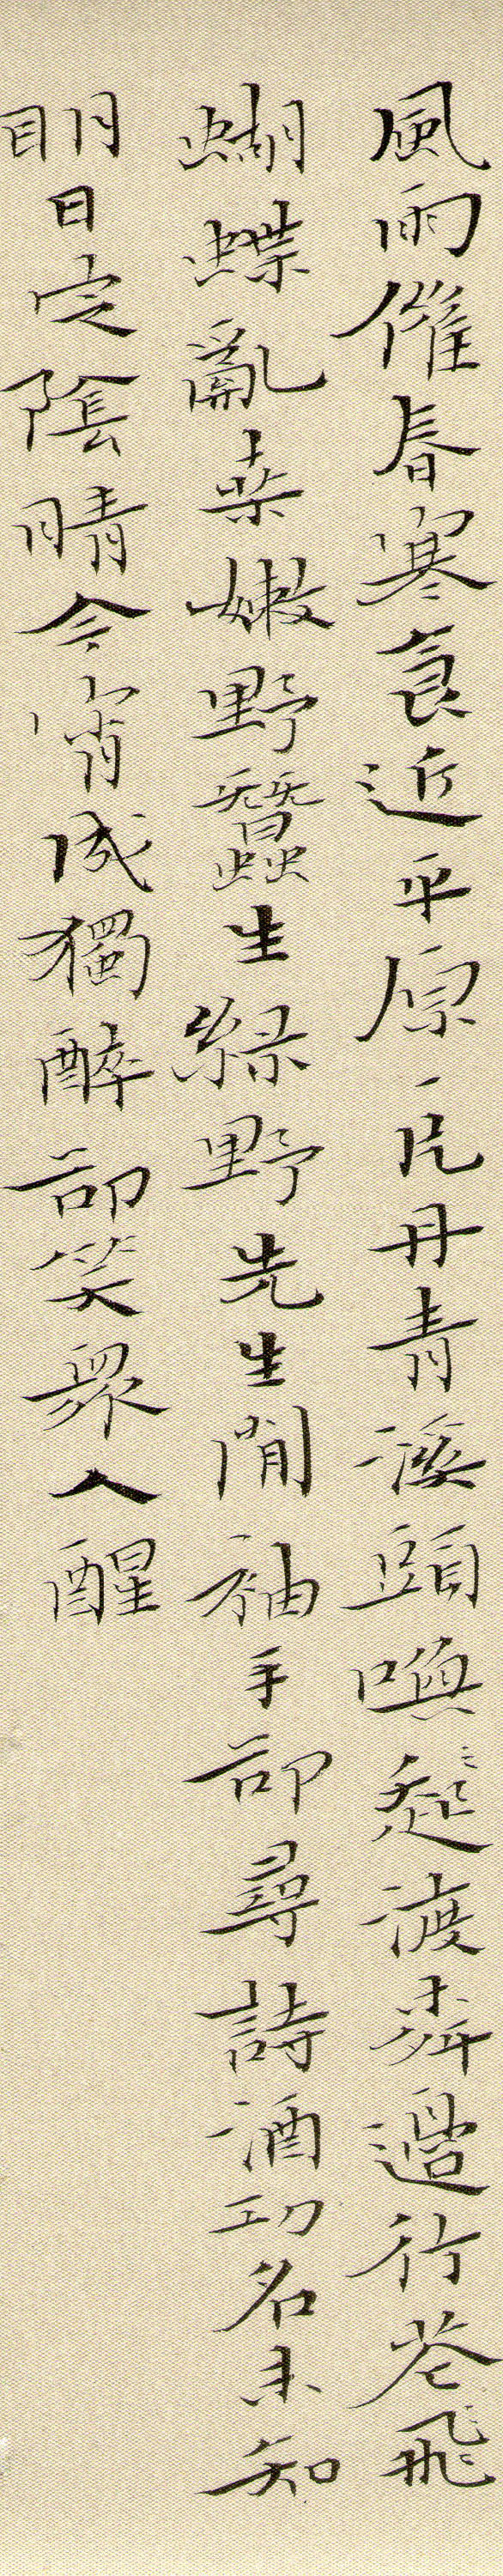 風雨催春寒食近平原一片丹青溪頭喚渡柳邊行花飛
蝴蝶亂桑嫩野蠶生綠野先生閒袖手却尋詩酒功名未知
明日定陰晴今宵成獨醉却笑眾人醒